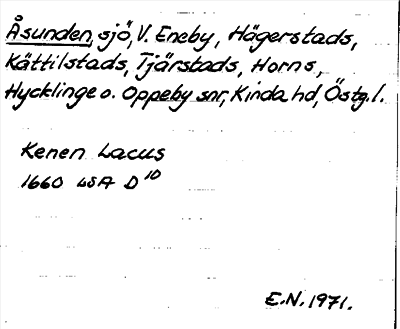 Åsunden, sjö, V. Eneby, Hägerstads,
Kättilstads, Tjärstads, Horns,
Hycklinge o. Oppeby snr, Kinda hd, Östg.l.
Kenen Lacus
1660 LSA D 10
E.N. 1971.